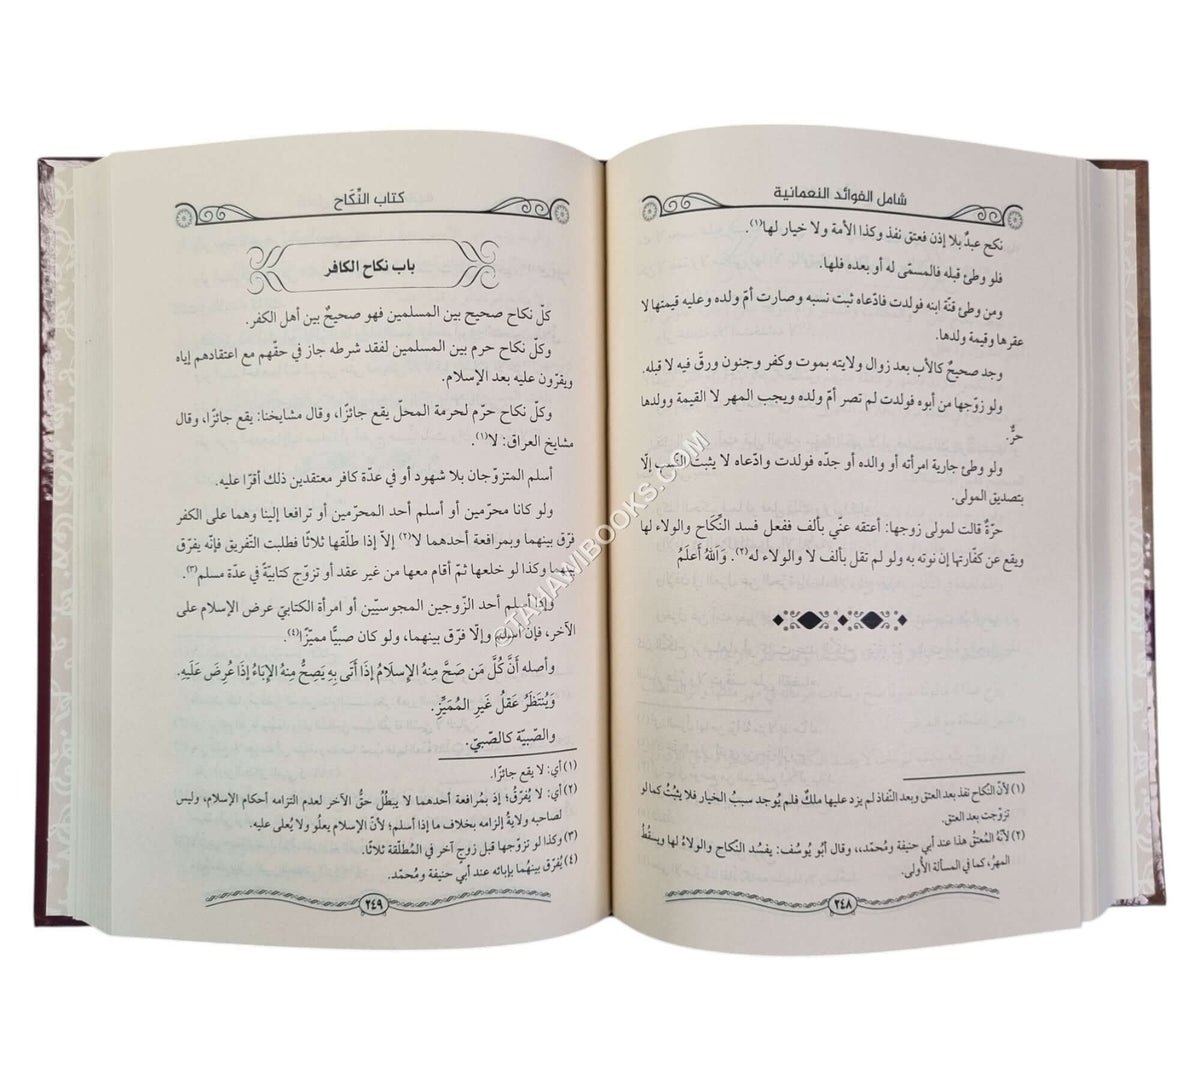 شامل الفوائد النعمانية
نكح عبدٌ بلا إذن فعتق نفذ وكذا الأمة ولا خيار لها(١).
فلو وطئ قبله فالمسمّى له أو بعده فلها.
ومن وطئ قنّة ابنه فولدت فادّعاه ثبت نسبه وصارت أمّ ولده وعليه قيمتها لا
عقرها وقيمة ولدها.
وجد صحيحٌ كالأب بعد زوال ولايته بموت وكفر وجنون ورقّ فيه لا قبله.
ولو زوّجها من أبوه فولدت لم تصر أمّ ولده ويجب المهر لا القيمة وولدها
حرٌّ.
ولو وطئ جارية امرأته أو والده أو جدّه فولدت وادّعاه لا يثبت النّسب إلّا
بتصديق المولى.
حرّةٌ قالت لمولى زوجها: أعتقه عنّي بألف ففعل فسد النّكاح والولاء لها
ويقع عن كفّارتها إن نوته به ولو لم تقل بألف لا والولاء له(٢). وَاَللهُ أَعلَمُ
(١) لأنّ النّكاح نفذ بعد العتق وبعد النّفاذ لم يزد عليها ملكٌ فلم يُوجد سببُ الخيار فلا يثبُتُ كما لو
تزوّجت بعد العتق.
(٢) لأنّهُ المُعتقُ هذا عند أبي حنيفة ومُحمّد،، وقال أبُو يُوسُف: يفسُد النّكاح والولاءُ لها ويسقُطُ
المهرُ، كما في المسألة الأُولى.
٢٤٨
كتاب النِّكَاح
باب نكاح الكافر
كلّ نكاح صحيح بين المسلمين فهو صحيحٌ بين أهل الكفر.
وكلّ نكاح حرم بين المسلمين لفقد شرطه جاز في حقّهم مع اعتقادهم إياه
ويقرّون عليه بعد الإسلام.
وكلّ نكاح حرّم لحرمة المحلّ يقع جائزًا، وقال مشايخنا: يقع جائزًا، وقال
مشايخ العراق: لا(١).
أسلم المتزوّجان بلا شهود أو في عدّة كافر معتقدين ذلك أقرّا عليه.
ولو كانا محرّمين أو أسلم أحد المحرّمين أو ترافعا إلينا وهما على الكفر
فرّق بينهما وبمرافعة أحدهما لا(٢) إلاّ إذا طلّقها ثلاثًا فطلبت التّفريق فإنّه يفرّق
بينهما وكذا لو خلعها ثمّ أقام معها من غير عقد أو تزوّج كتابيّة في عدّة مسلم(٣).
وإذا أسلم أحد الزّوجين المجوسيّين أو امرأة الكتابيّ عرض الإسلام على
الآخر، فإن أسلم وإلّا فرّق بينهما، ولو كان صبيًّا مميّزًا(٤).
وأصله أَنَّ كُلَّ مَن صَحَّ مِنهُ الإِسلَامُ إذَا أَتَى بِهِ يَصِحُّ مِنهُ الإِبَاءُ إذَا عُرِضَ عَلَيهِ.
وَيُنتَظَرُ عَقلُ غَيرِ المُمَيِّزِ.
والصّبيّة كالصّبيّ.
(١) أي: لا يقع جائزًا.
(٢) أي: لا يُفرّقُ؛ إذ بمُرافعة أحدهما لا يبطُلُ حقُّ الآخر لعدم التزامه أحكام الإسلام، وليس
لصاحبه ولايةُ إلزامه بخلاف ما إذا أسلم؛ لأنّ الإسلام يعلُو ولا يُعلى عليه.
(٣) وكذا لو تزوّجها قبل زوجٍ آخر في المُطلّقة ثلاثًا.
(٤) يُفرّق بينهُما بإبائه عند أبي حنيفة ومُحمّد.
٢٤٩
©TAHAWIBOOKS.COM